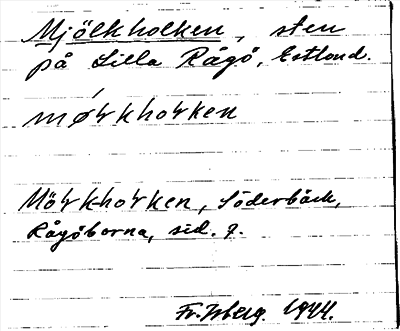 Mjölkholken, sten
på Lilla Rågö, Estland.
mørkhorken
Mörkhorken, Söderbäck,
Rågöborna, sid. 7.
Fr. Isberg 1944.